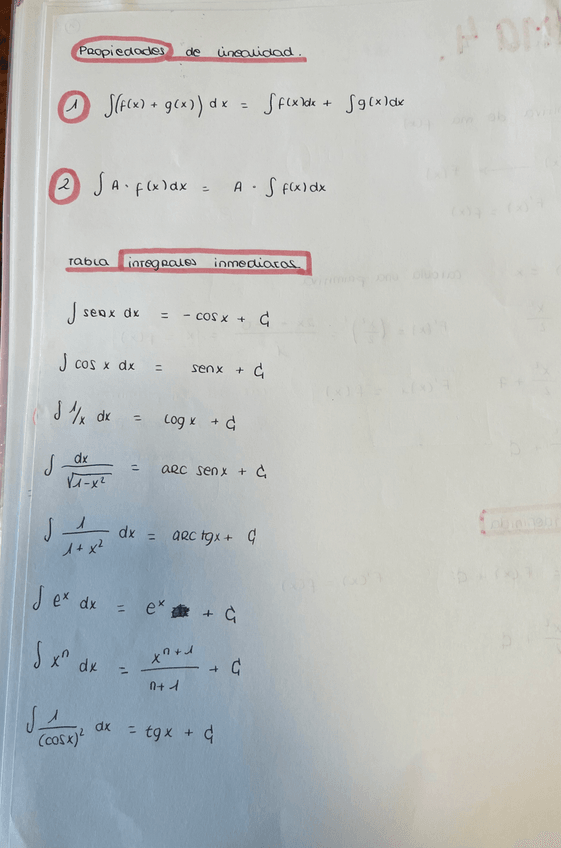 Propiedades de linealidad.
1 ∫(f(x) + g(x)) dx = ∫f(x)dx + ∫g(x)dx
2 ∫ A · f(x)dx = A · ∫ f(x)dx
Tabla integrales inmediatas
∫ senx dx = - cosx + C
∫ cos x dx = senx + C
∫ 1/x dx = log x + C
∫ dx/√1-x² = arc senx + C
∫ 1/1+x² dx = arc tgx + C
∫ eˣ dx = eˣ + C
∫ xⁿ dx = xⁿ⁺¹/n+1 + C
∫ 1/(cosx)² dx = tgx + C